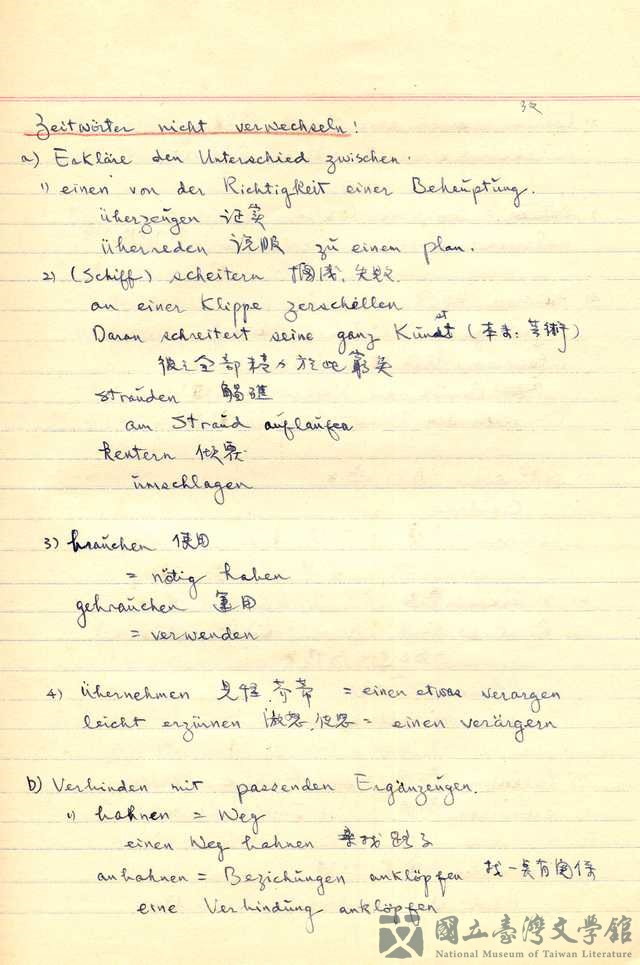 Zeitwörter nicht verwechseln!
a) Erkläre den Unterschied zwischen.
1) einen von der Richtigkeit einer Beheuptung.
überzeugen 证实
überreden 说服 zu einem plan.
2) (Schiff) scheitern 擱浅、失敗
an einer Klippe zerschellen
Daran schreitert seine ganz Kunst (本来:芸術)
彼之全部精力於此窮矣
stranden 觸礁
am Strand auflaufen
kentern 傾覆
umschlagen
3) brauchen 使用
= nötig haben
gebrauchen 運用
= verwenden
4) übernehmen 見怪、芥蒂 = einen etwas verargen
leicht erzürnen 激怒、使怒 = einen verärgern
b) Verbinden mit passenden Ergänzeugen.
1) bahnen = Weg
einen Weg bahnen
anbahnen = Beziehungen anklöpfen 找一点有関係
eine Verbindung anklöpfen
國立臺灣文學館
National Museum of Taiwan Literature